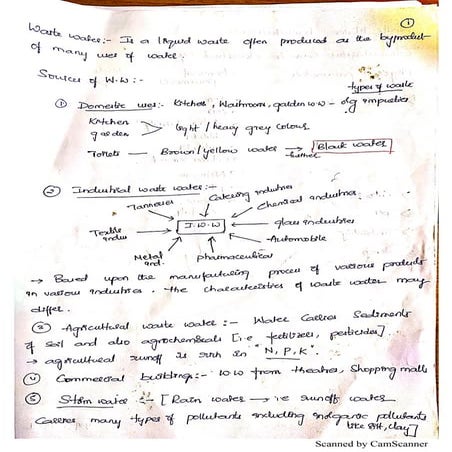 ①
Waste water:- Is a liquid waste often produced as the byproduct
of many uses of water.
Sources of W.W:-
types of waste
① Domestic uses:- Kitchen, Washroom, garden w w - org impurities
Kitchen
garden > light / heavy grey colour
Toilets - Brown/yellow water → Black water
further
② Industrial waste water:-
Tanneries
Catering industries
Chemical industries
Textile
indus
I.W.W
glass industries
Automobile
Metal
ind.
pharmaceutical
→ Based upon the manufacturing process of various products
in various industries. the characteristics of waste water may
differ.
③ Agricultural waste water:- Water Carries Sediments
of soil and also agrochemicals [i.e fertilizers, pesticides]..
→ agricultural runoff is rich in "N, P, K".
④ Commercial buildings:- w w from theatres, Shopping malls
⑤ Storm water:- [Rain water → i.e runoff water
Carries many types of pollutants including inorganic pollutants
like silt, clay]
Scanned by CamScanner